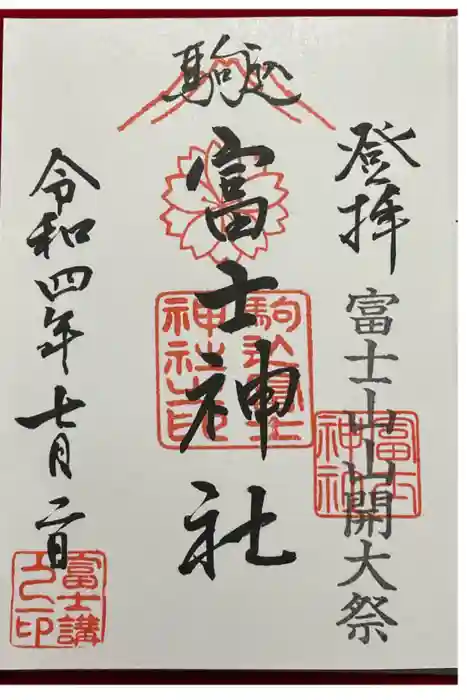 登拝 富士山山開大祭
富士
神社
駒込
富士神社
駒込富士
神社之印
令和四年七月二日
富士講
之印